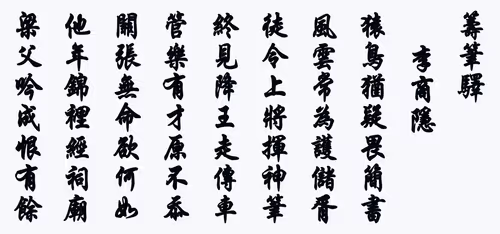 籌筆驛
李商隱
猿鳥猶疑畏簡書
風雲常為護儲胥
徒令上將揮神筆
終見降王走傳車
管樂有才原不忝
關張無命欲何如
他年錦裡經祠廟
梁父吟成恨有餘